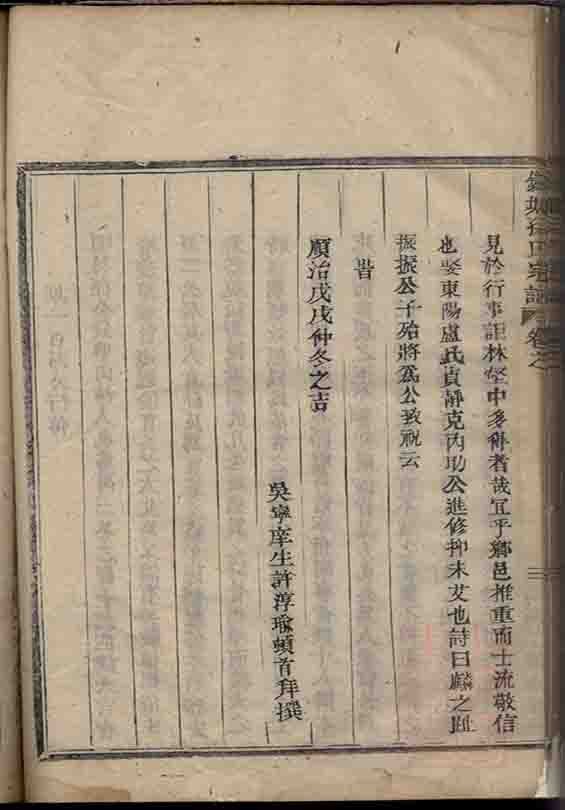 見於行事詎林壑中多得者哉宜乎鄉邑推重而士流敬信
也娶東陽盧氏貞靜克內助公進修抑未艾也詩曰麟之趾
振振公子殆將為公致祝云
旹
順治戊戌仲冬之吉
吳寧庠生許淳瑜頓首拜撰
氏宗譜
卷之